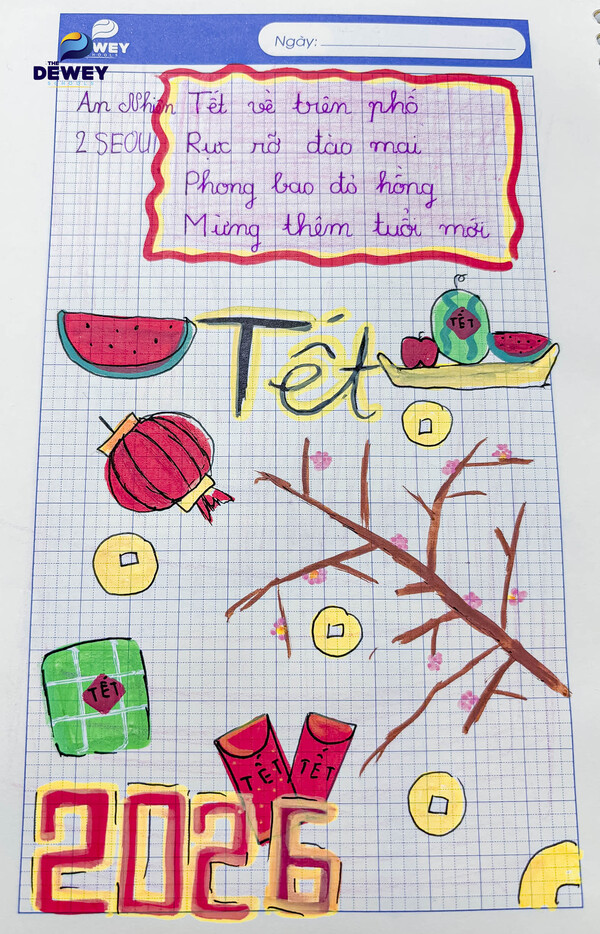 THE DEWEY SCHOOLS
WEY
Ngày:
An Nhiên
2 SEOUL
Tết về trên phố
Rực rỡ đào mai
Phong bao đỏ hồng
Mừng thêm tuổi mới
Tết
TẾT
TẾT
TẾT
TẾT
2026